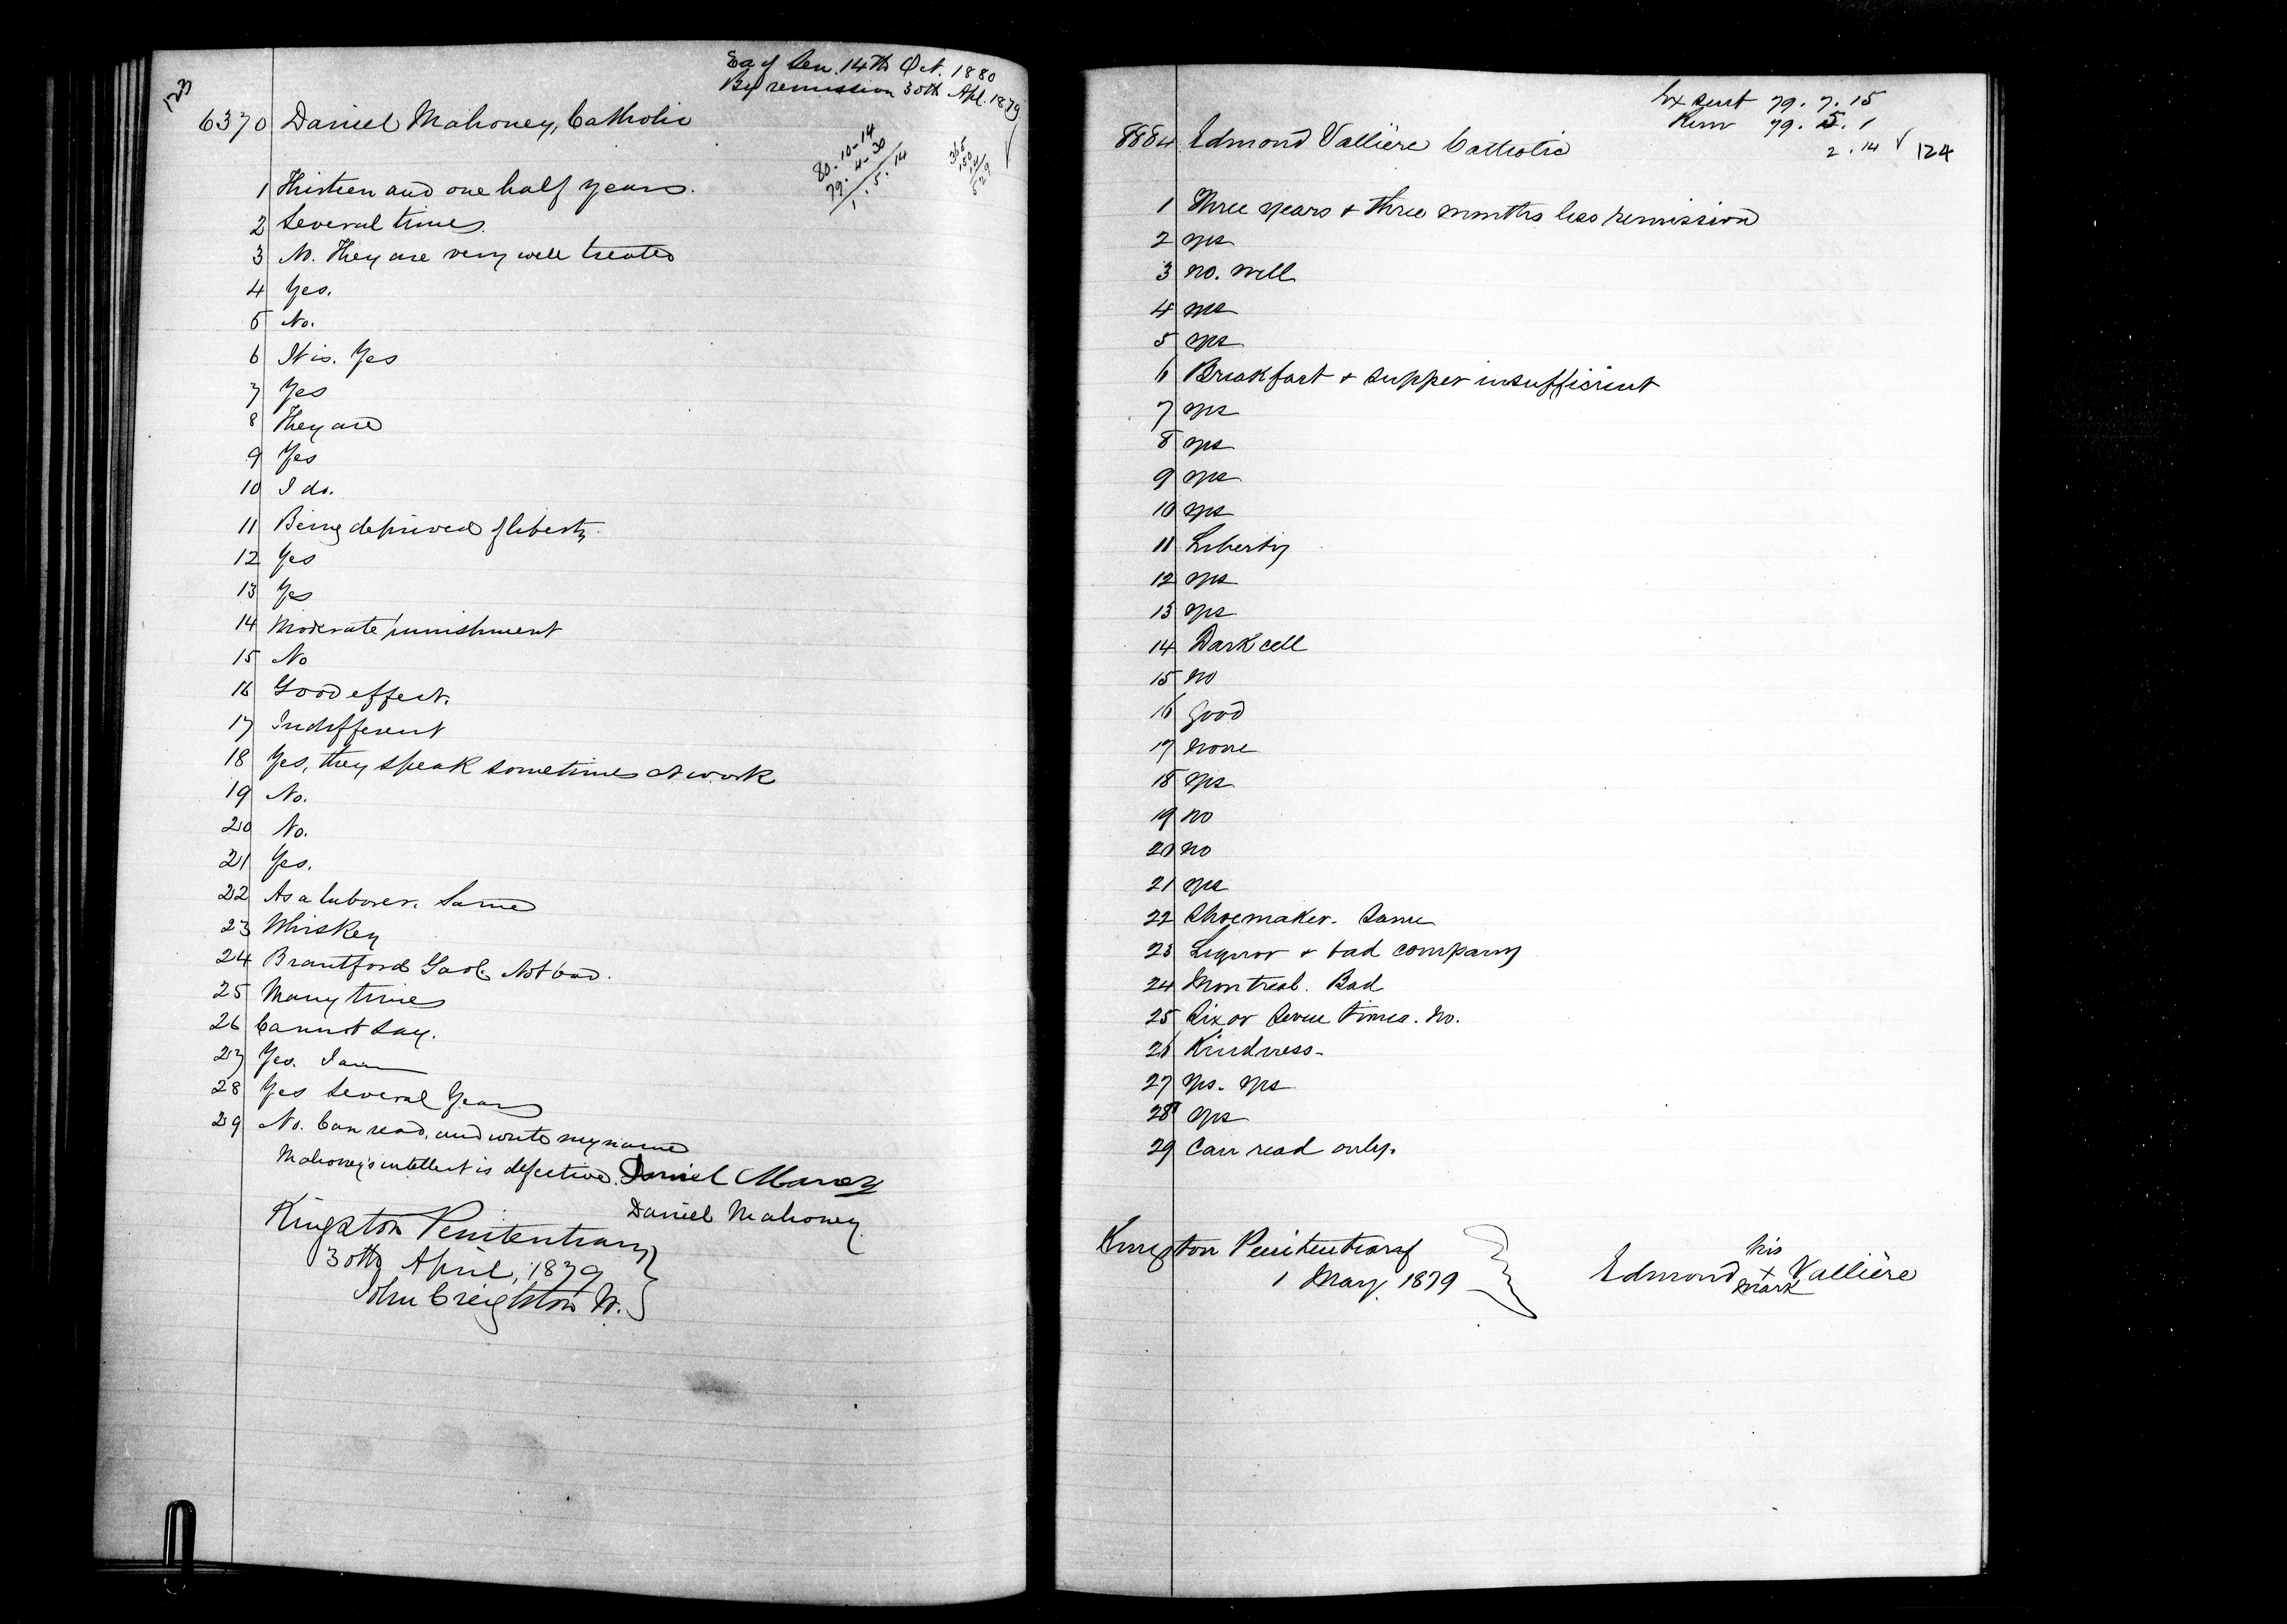 123
Ex of Sen. 14th Oct. 1880
By remission 30th Apl. 1879
6370 Daniel Mahoney, Catholic
80-10-14
79-4-30
1.5.14
365
150
14
529
1 Thirteen and one half years.
2 Several times.
3 No. They are very well treated
4 Yes.
5 No.
6 It is. Yes
7 Yes
8 They are
9 Yes
10 I do.
11 Being deprived of liberty.
12 Yes
13 Yes
14 Moderate punishment
15 No
16 Good effect.
17 Indifferent
18 Yes, they speak sometimes at work
19 No.
20 No.
21 Yes.
22 As a laborer. Same
23 Whiskey
24 Brantford Gaol. Not bad.
25 Many times
26 Cannot say.
27 Yes. I am
28 Yes Several Years
29 No. Can read, and write my name
Mahoney's intellect is defective. Daniel Maney
Daniel Mahoney
Kingston Penitentiary
30th April, 1879
John Creighton W.
Ex Sent 79. 7. 15
Rem 79. 5. 1
2. 14 124
8884 Edmond Vallière Catholic
1 Three years + three months less remission
2 yes
3 no. well
4 yes
5 yes
6 Breakfast + supper insufficient
7 yes
8 yes
9 yes
10 yes
11 Liberty
12 yes
13 yes
14 Dark cell
15 no
16 good
17 none
18 yes
19 no
20 no
21 yes
22 Shoemaker. Same
23 Liquor + bad company
24 Montreal. Bad
25 Six or Seven times. No.
26 Kindness-
27 Yes. Yes
28 yes
29 Can read only.
Kingston Penitentiary
1 May, 1879
his
Edmond x Vallière
mark